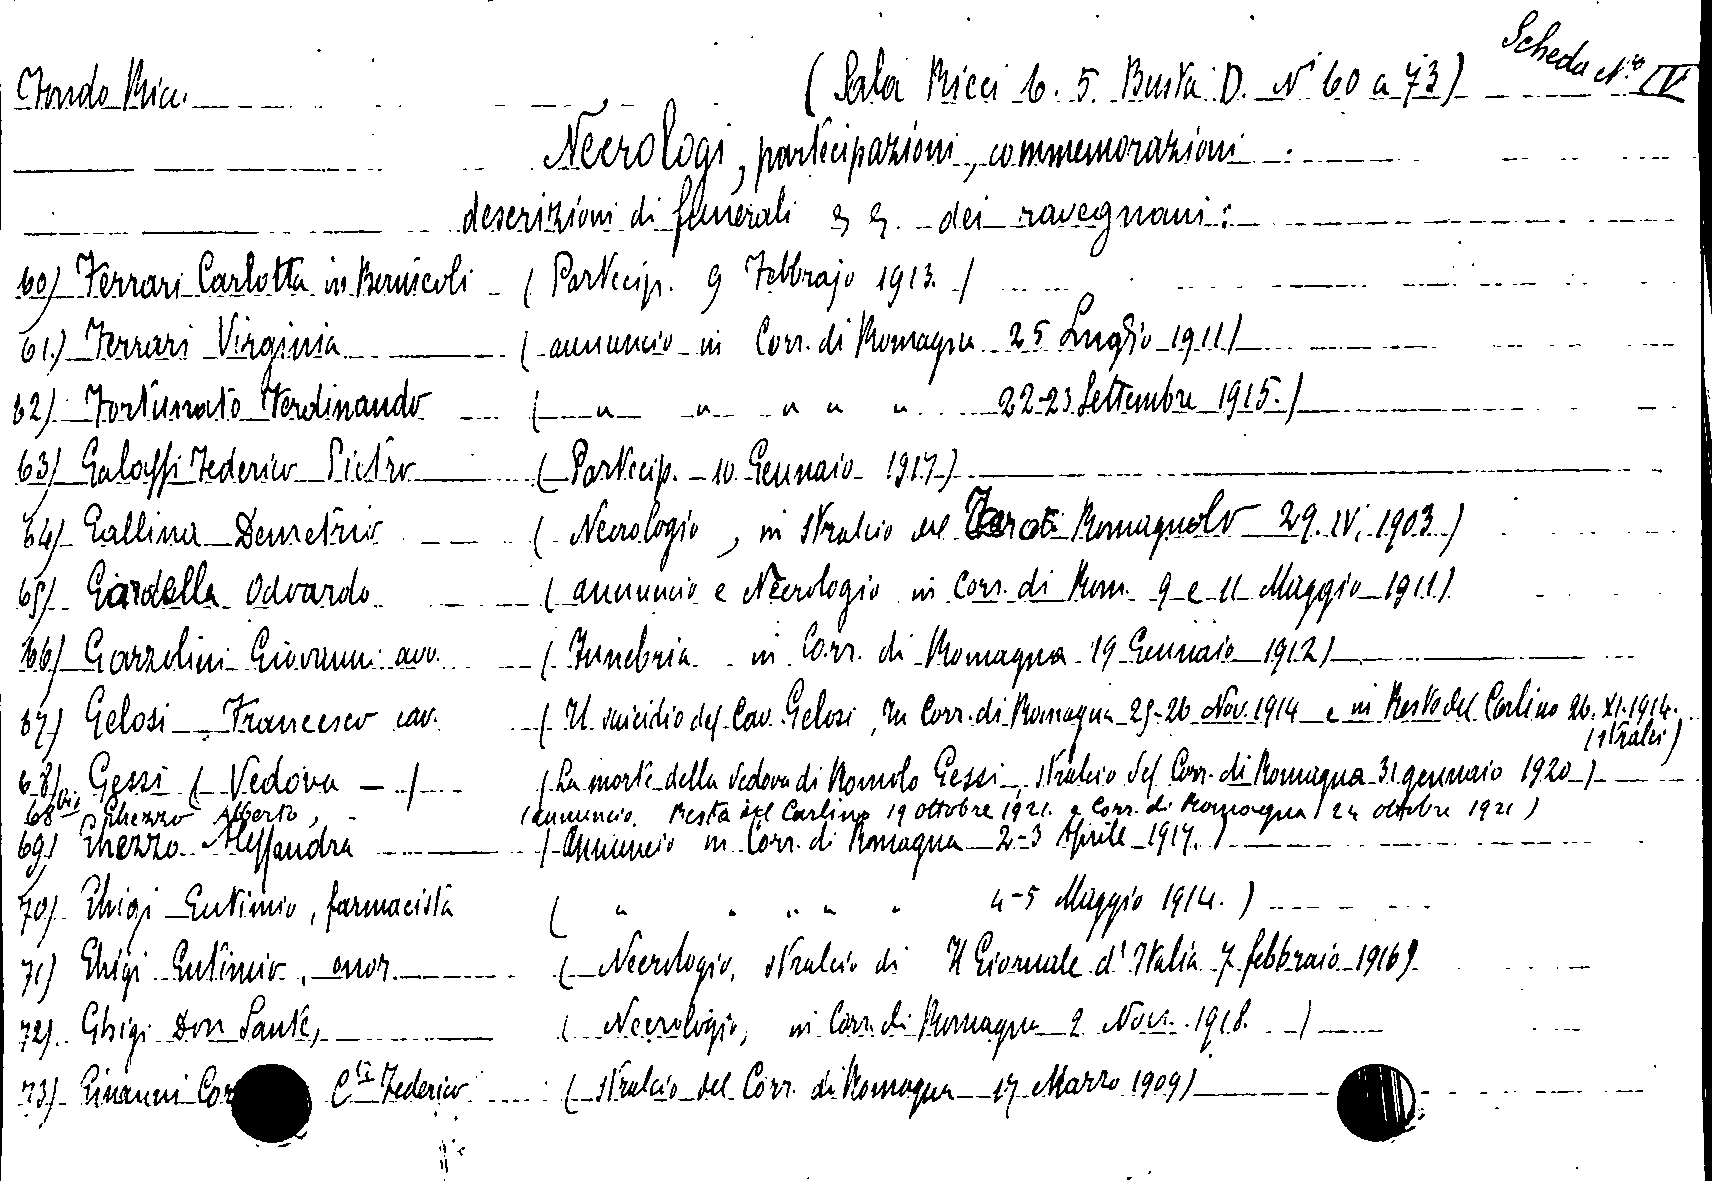 Scheda N.ro IV
Fondo Ricc. (Sala Ricci b. 5. Busta D. N° 60 a 73)
Necrologi, partecipazioni, commemorazioni:
descrizioni di funerali dei ravegnani:
60) Ferrari Carlotta in Bernicoli (Partecip. 9 Febbrajo 1913.)
61.) Ferrari Virginia (annuncio in Corr. di Romagna 25 Luglio 1911)
62) Fortunato Ferdinando ( " " " " " 22-23 Settembre 1915.)
63) Galassi Federico Pietro (Partecip. 10 Gennaio 1917)
64) Gallina Demetrio (Necrologio, in stralcio del Romagnolo 29. IV. 1903)
65) Gardella Odoardo (annuncio e Necrologio in Corr. di Rom. 9 e 11 Maggio 1911)
66) Garzolini Giovanni avv. (Funebria in Corr. di Romagna 19 Gennaio 1912)
67) Gelosi Francesco cav. (Il suicidio del Cav. Gelosi, In Corr. di Romagna 25-26 Nov. 1914 e in Resto del Carlino 26. XI. 1914.
(stralci)
68) Gessi (Vedova - ) (La morte della vedova di Romolo Gessi, stralcio del Corr. di Romagna 31 gennaio 1920)
68 bis Ghezzo Alberto, (annuncio. Resto del Carlino 19 ottobre 1921. e Corr. di Romagna 24 ottobre 1921)
69) Ghezzo Alessandra (Annuncio in Corr. di Romagna 2-3 Aprile 1917.)
70) Ghigi Eutimio, farmacista ( " " " " " 4-5 Maggio 1914.)
71) Ghigi Eutimio, onor. (Necrologio, stralcio di Il Giornale d'Italia 7 febbraio 1916)
72) Ghigi Don Sante, (Necrologio, in Corr. di Romagna 2 Nov. 1918.)
73) Ginanni Cor C.te Federico (stralcio del Corr. di Romagna 17 Marzo 1909)